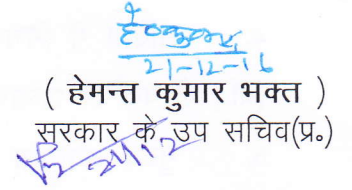 हेoकुमार
21-12-16
( हेमन्त कुमार भक्त )
सरकार के उप सचिव(प्र॰)
21/12